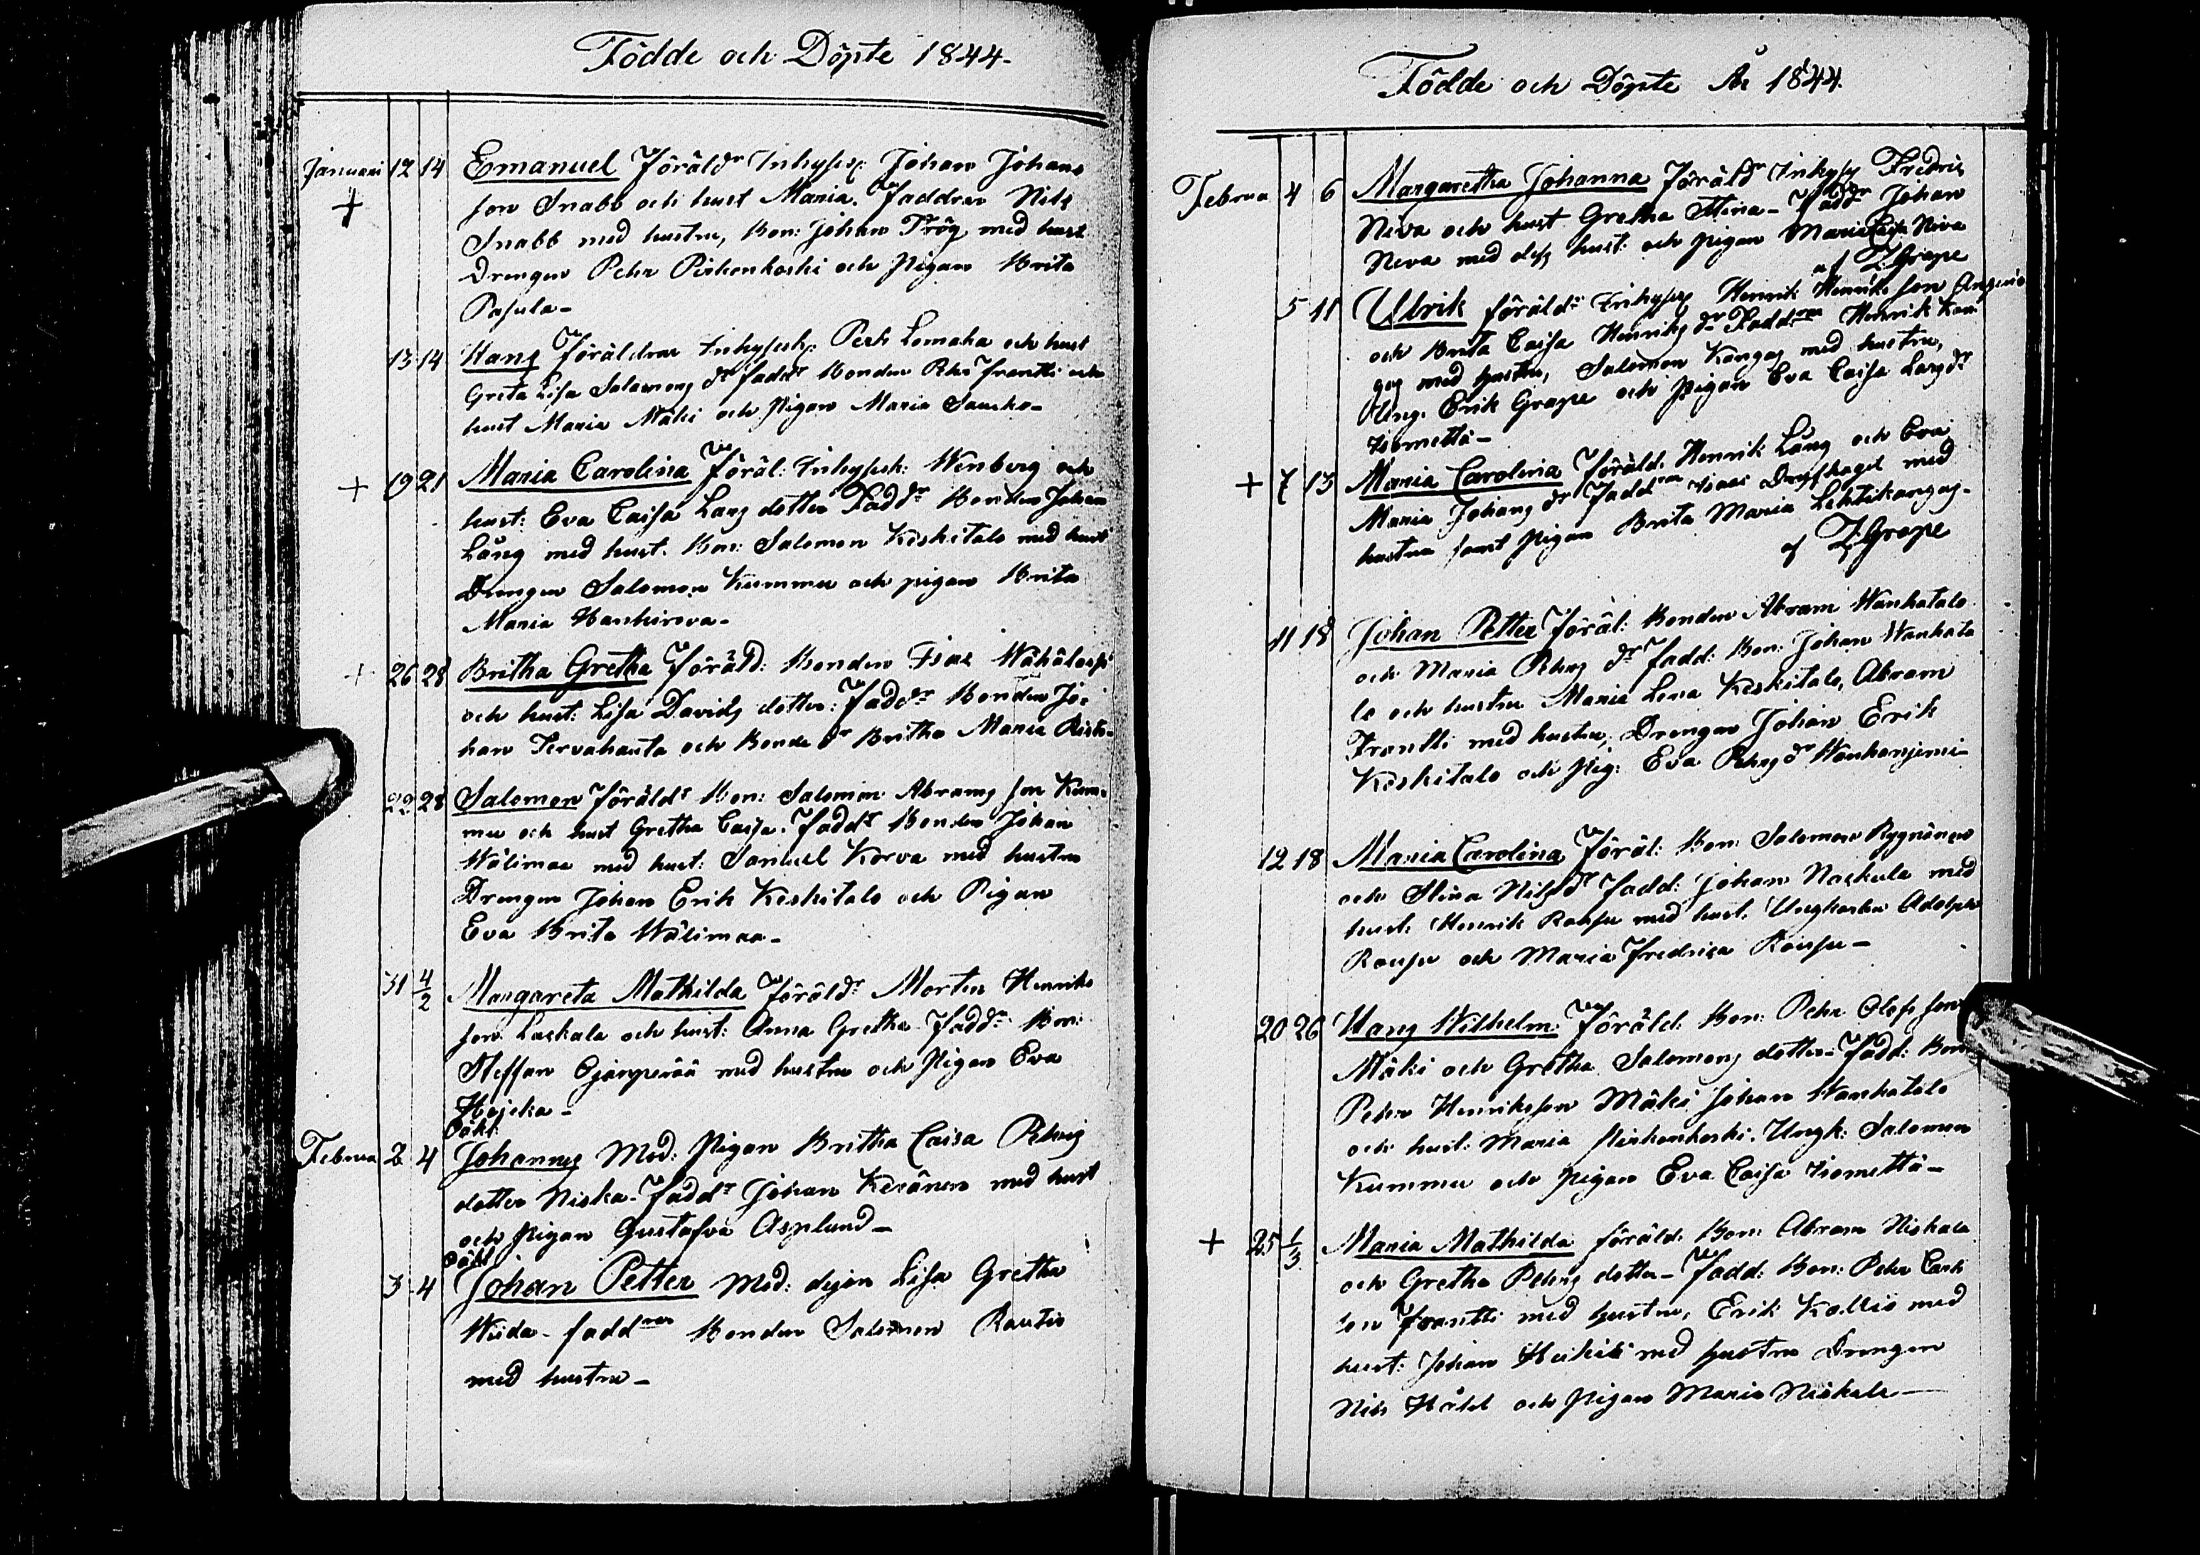 Födde och Döpte 1844-
Januari 12 14 Emanuel Föräldr Inhyses: Johan Johans
+ son Snabb och hust Maria. Faddrar Nils
Snabb med hustru, Bon: Johan Trög med hust
Drengen Pehr Pirkonkoski och Pigan Brita
Pasula-
13 14 Hans Föräldrar Inhysesk: Pehr Lomaka och hust
Greta Lisa Salomons dr faddr Bonden Pehr Frantti och
hust Maria Mäki och Pigan Maria Saucko-
+ 19 21 Maria Carolina Föräl: Inhysesk: Wenberg och
hust: Eva Caisa Lars dotter Faddr Bonden Johan
Lång med hust. Bon: Salomon Keskitalo med hust
Drengen Salomon Kummu och pigan Brita
Maria Hankirova-
+ 26 28 Britha Gretha föräld: Bonden Isac
och hust: Lisa Davids dotter: faddr Bonden Jo-
han Tervahauta och Bonde dr Britha Maria
22 28 Salomon föräldr Bon: Salomon Abrams son Kum-
mu och hust Gretha Caisa. Faddr Bonden Johan
Wälimaa med hust: Samuel Korva med hustru
Drengen Johan Erik Keskitalo och Pigan
Eva Brita Wälimaa-
31 4/2 Margareta Mathilda föräldr Morten Henriks
son Laskala och hust: Anna Gretha faddr Bon:
Steffan Ojanperää med hustru och Pigan Eva
Hojeka-
oäkt
Februa 2 4 Johannes Mod: Pigan Britha Caisa Pehrs
dotter Niska. faddr Johan Keränen med hust
och Pigan Gustafva Asplund-
oäkt
3 4 Johan Petter Mod: dejan Lisa Gretha
Wiida- faddrar Bonden Salomon Rautio
med hustru-
Födde och Döpte År 1844.
Februa 4 6 Margaretha Johanna Föräldr Inhyses Fredric
Neva och hust Gretha Stina- Faddr Johan
Neva med dess hust: och pigan Maria Caisa Neva
af Z Grape
5 11 Ulrik föräldr Inhyses Henrik Henriks son
och Brita Caisa Henriks dr Faddrar Henrik Kan
gas med hustru, Salomon Kangas med hustru,
Ung. Erik Grape och Pigan Eva Caisa Larsdr
Liomettä-
+ 7 13 Maria Carolina föräld. Henrik Lång och Eva
Maria Johans dr Faddrar Isaac med
hustru samt Pigan Brita Maria Lehtikangas-
af Z: Grape
11 18 Johan Petter föräl: Bonden Abram Wanhatalo
och Maria Pehrs dr fadd: Bon: Johan Wanhata
lo och hustru Maria Lena Keskitalo, Abram
Frantti med hustru, Drengen Johan Erik
Keskitalo och Pig: Eva Pehrs dr Wanhaniemi-
12 18 Maria Carolina Föräl: Bon: Salomon Rygnänen
och Stina Nilsdr fadd: Johan Naskula med
hust: Henrik Rousu med hust. Ungkarlen Adolph
Rousu och Maria Fredrica Rousu-
20 26 Hans Wilhelm Föräld. Bon: Pehr Olofs son
Mäki och Gretha Salomons dotter- Fadd: Bon:
Pehr Henriksson Mäki Johan Wanhatalo
och hust: Maria Pirkonkoski. Ungk: Salomon
Kummu och Pigan Eva Caisa Liomettä-
+ 25 1/3 Maria Mathilda föräld. Bon: Abram Niskala
och Gretha Pehrs dotter- Fadd: Bon: Pehr Carls
son Frantti med hustru, Erik Kallio med
hust: Johan Heikki med hustru Drengen
Nils Håld och Pigan Maria Niskala-